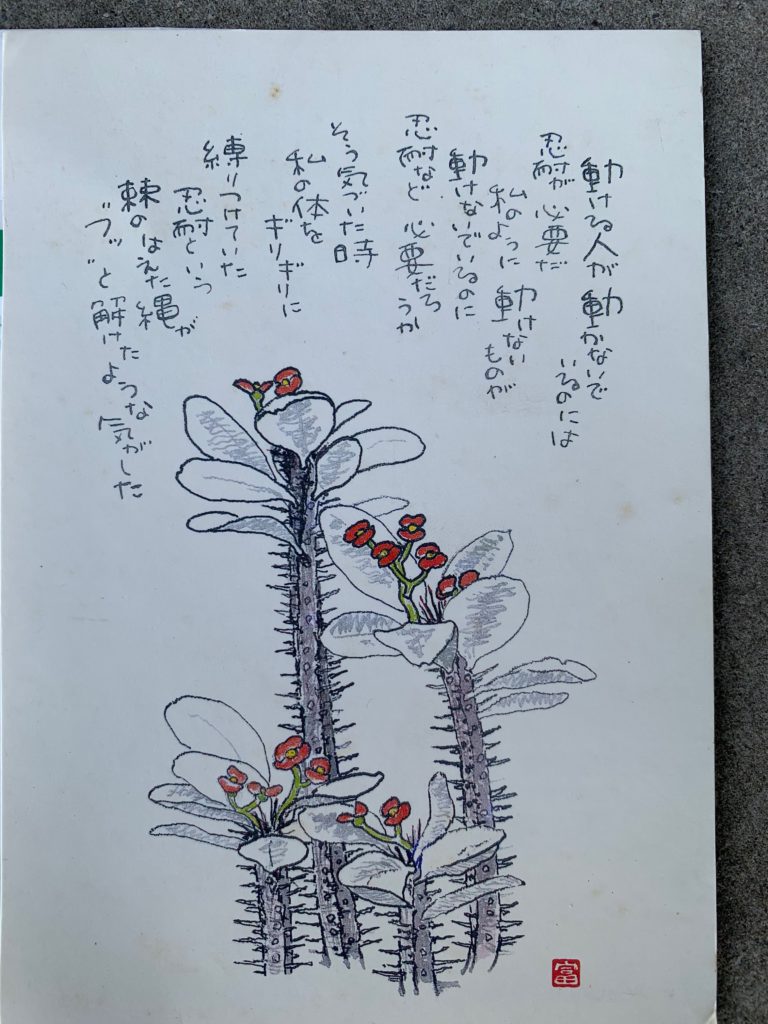 動ける人が 動かないで
いるのには
忍耐が 必要だ
私のように 動けない
ものが
動けないでいるのに
忍耐など 必要だろうか
そう気づいた時
私の体を
ギリギリに
縛りつけていた
忍耐という
棘のはえた縄が
"フッ"と解けたような 気がした
富